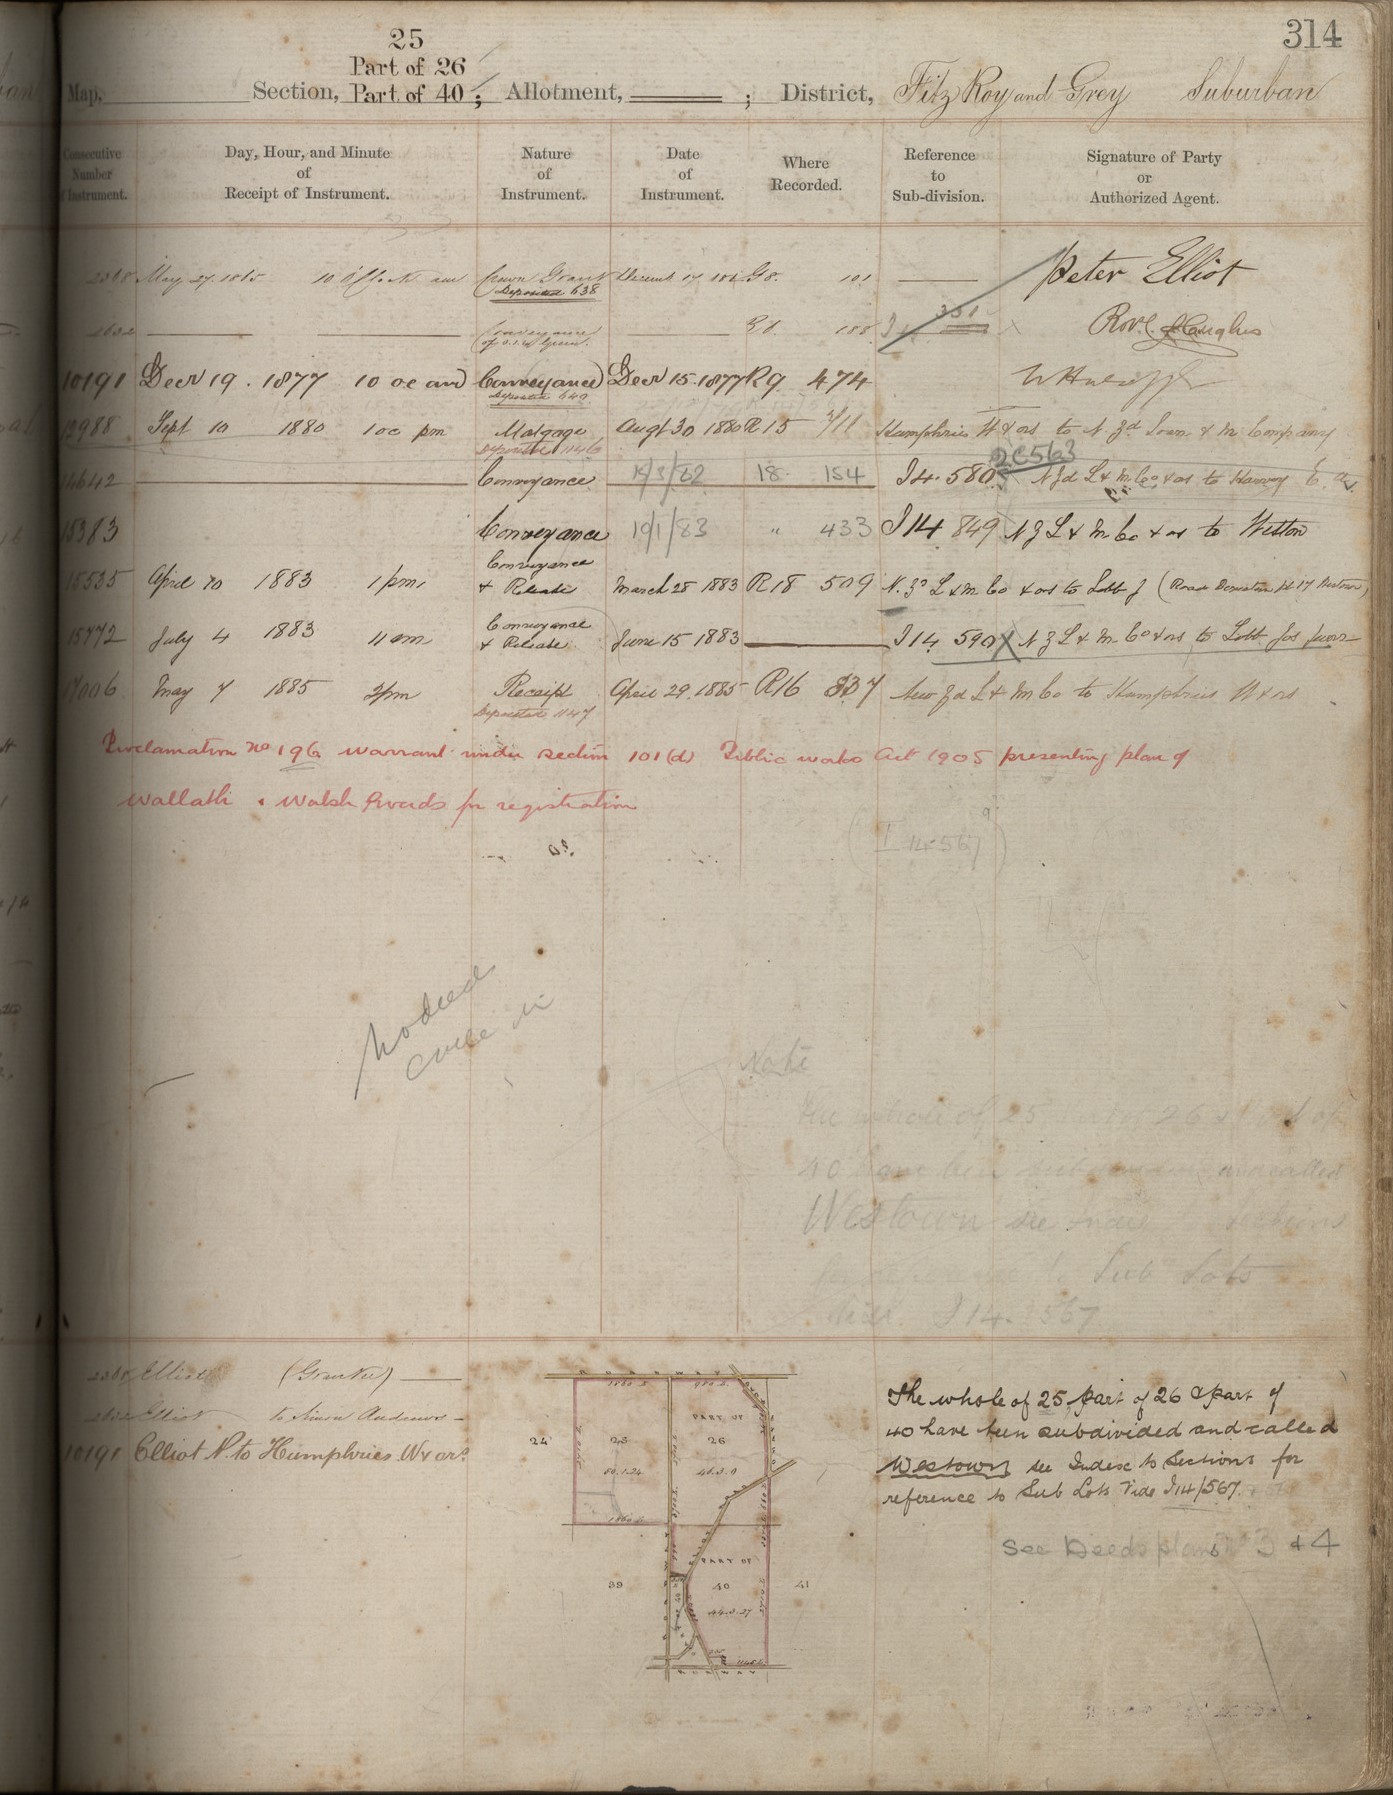 314
25
Part of 26
Map, Section, Part of 40; Allotment, ; District, Fitz Roy and Grey Suburban
Consecutive Number of Instrument.
Day, Hour, and Minute of Receipt of Instrument.
Nature of Instrument.
Date of Instrument.
Where Recorded.
Reference to Sub-division.
Signature of Party or Authorized Agent.
2368 May 27 1865 10 o'clock am Crown Grant G8. 101 Peter Elliot
Deposited 638
Conveyance 188 351
10191 Decr 19. 1877 10 oc am Conveyance Decr 15. 1877 R9 474
Deposited 640
12988 Sept 10 1880 1 oc pm Mortgage Augt 30 1880 R 15 711 Humphries W & ors to N. Zd Loan & M Company
Deposited 1146
2C563
14642 Conveyance 18. 154 I 4. 580 N Zd L & M. Co & ors to Harvey E.
15383 Conveyance 19/1/83 " 433 I 14 849 N Z L & M Co & or to Weston
15535 April 10 1883 1 pm. Conveyance & Release March 28 1883 R18 509 N. Zd L & M Co & ors to Lobb J
15772 July 4 1883 11 am Conveyance & Release June 15 1883 I 14 590 X N Z L & M. Co & ors to Lobb Jos junr
17006 May 7 1885 2 pm Receipt April 29. 1885 R16 337 New Zd L & M Co to Humphries W & ors
Deposited 1147
Proclamation No 196 warrant under section 101 (d) Public works Act 1905 presenting plan of
Wallath & Walsh Roads for registration
(I 14.567)
No deed
Note
The whole of 25 part of 26 & part of
40 have been subdivided and called
Westown see Index to Sections
for reference to Sub Lots
Vide I 14. 567
2368 Elliot (Grantee)
Elliot to Simon Andrews
10191 Elliot P. to Humphries W & ors
The whole of 25, part of 26 & part of
40 have been subdivided and called
Westown see Index to Sections for
reference to Sub Lots Vide I 14/567.
See Deeds plans No 3 & 4
ROADWAY
24
25
50.1.24
PART OF
26
46.3.0
39
PART OF
40
44.3.27
41
ROADWAY